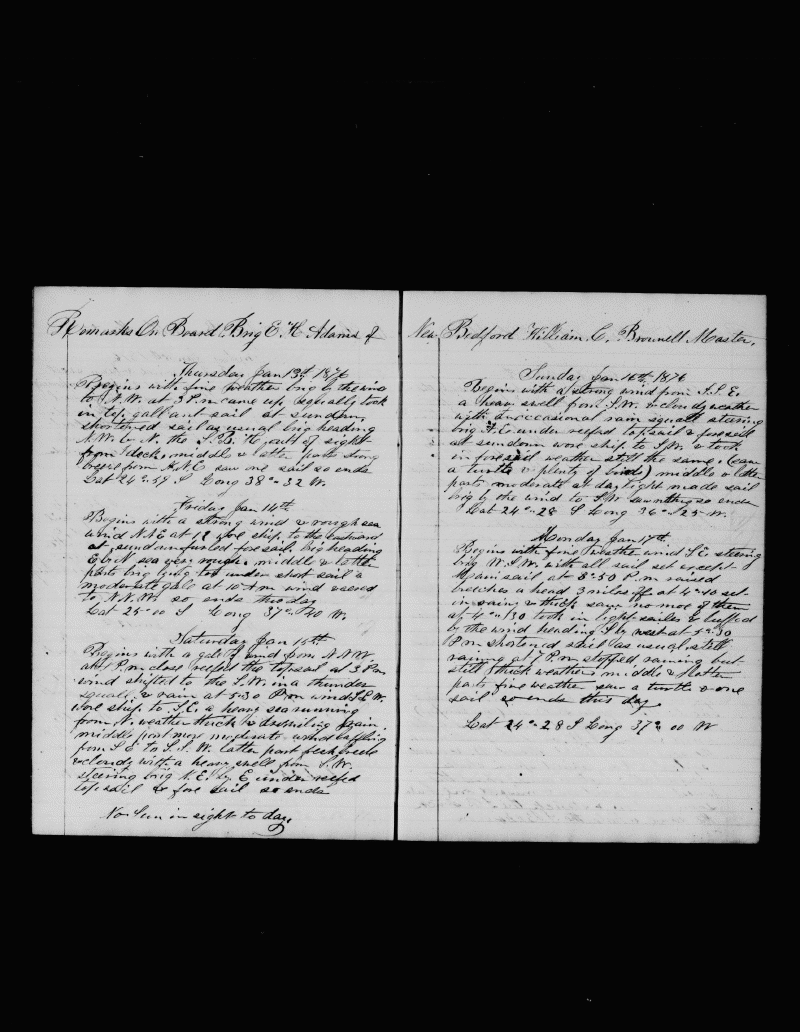 Remarks On Board Brig E. H Adams of
Thursday Jan 13th 1876
Begins with fine weather brig by the wind
to N.W. at 3 P.m came up squally took
in top gallant sail at sundown
shortened sail as usual brig heading
N.W. by N. the part of sight
from deck middle & latter part strong
breeze from N.N.E saw one sail so ends
Lat 24°-59 S Long 38°-32 W.
Friday Jan 14th
Begins with a strong wind & rough sea
wind N.N.E at 12 wore ship to the eastward
at sundown furled foresail brig heading
E by N sea very rough middle & latter
parts brig lying too under short sail a
moderate gale at 10 A.m wind veered
to N.N.W. so ends this day
Lat 25°00 S Long 37° 40 W.
Saturday Jan 15th
Begins with a gale of wind from N.N.W.
P.m close reefed the topsail at 3 P.m
wind shifted to the S.W. in a thunder
squall & rain at 5-30 P.m wind S.S.W.
wore ship to S.E. a heavy sea running
from N. weather thick & drizzling rain
middle part more moderate wind baffling
from S E to S.S.W. latter part fresh breeze
& cloudy with a heavy swell from S.W.
steering brig N.E. by E under reefed
top sail & fore sail so ends
No Sun in sight to day.
New Bedford William C. Brownell Master.
Sunday Jan 16th, 1876
Begins with a strong wind from S.S.E.
a heavy swell from S.W. & cloudy weather
with an occasional rain squall steering
brig N.E under reefed topsail & foresail
at sundown wore ship to S.W. & took
in foresail weather still the same. (saw
a turtle & plenty of birds) middle & latter
parts moderate at day light made sail
brig by the wind to S.W saw nothing so ends
Lat 24°-28 S Long 36°-25 W.
Monday Jan 17th.
Begins with fine weather wind S.E steering
brig W.S.W. with all sail set except
Mainsail at 3-30 P.m raised
breeches a head 3 miles off at 4°-40 set
in rainy & thick saw no more of them
at 4°-30 took in light sails & luffed
by the wind heading S by west at 5-30
P.m shortened sail as usual still
raining at 7 P.m stopped raining but
still thick weather middle & latter
parts fine weather saw a turtle & one
sail so ends this day
Lat 24°-28 S Long 37° 00 W